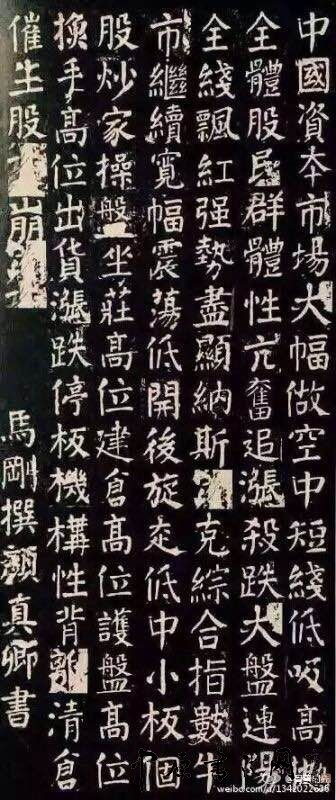 中國資本市場大幅做空中短綫低吸高
全體股民群體性亢奮追漲殺跌大盤連陽
全綫飄紅强勢盡顯納斯克綜合指數牛
市繼續寬幅震蕩低開後旋走低中小板個
股炒家操盤坐莊高位建倉高位護盤高位
換手高位出貨漲跌停板機構性背離清倉
催生股崩
馬剛撰顏真卿書
weibo.com/u/1342022620